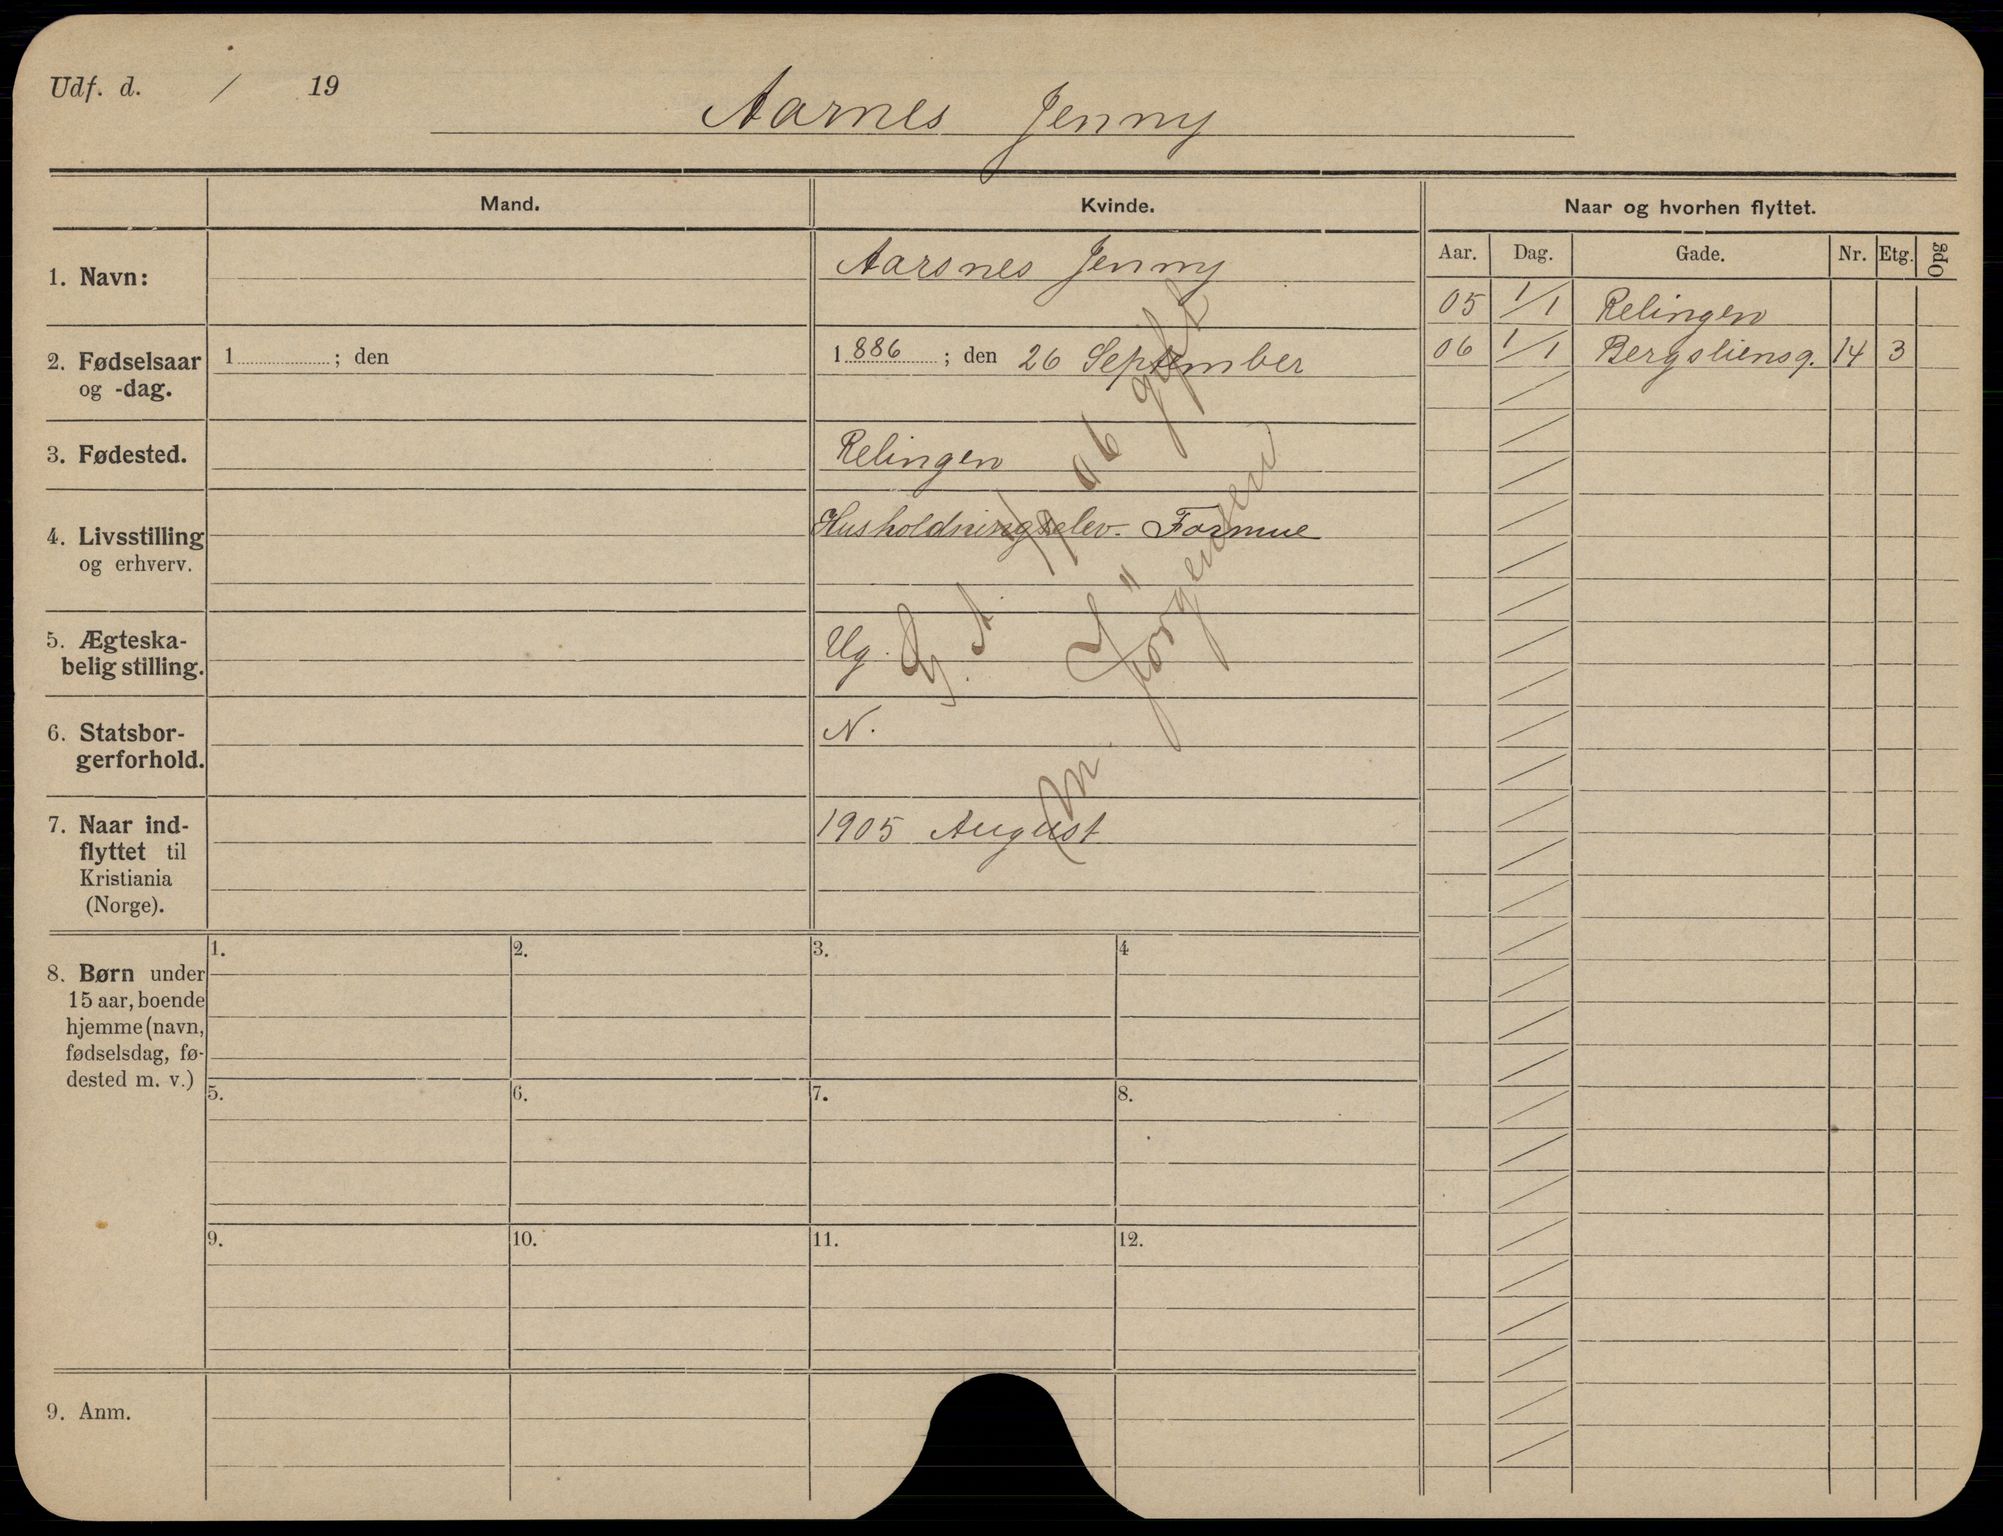 Udf. d. / 19
Aarnes Jenny
Mand. Kvinde. Naar og hvorhen flyttet.
Aar. Dag. Gade. Nr. Etg. Opg
1. Navn: Aarsnes Jenny
05 1/1 Relingen
2. Fødselsaar og -dag. 1 ; den 1886 ; den 26 September
06 1/1 Bergsliensg. 14 3
3. Fødested. Relingen
4. Livsstilling og erhverv. Husholdningselev. Formue
5. Ægteska-
belig stilling. Ug.
6. Statsbor-
gerforhold. N.
7. Naar ind-
flyttet til
Kristiania
(Norge). 1905 August
06 gift
m. Jörgensen
8. Børn under
15 aar, boende
hjemme (navn,
fødselsdag, fø-
dested m. v.)
1. 2. 3. 4
5. 6. 7. 8.
9. 10. 11. 12.
9. Anm.